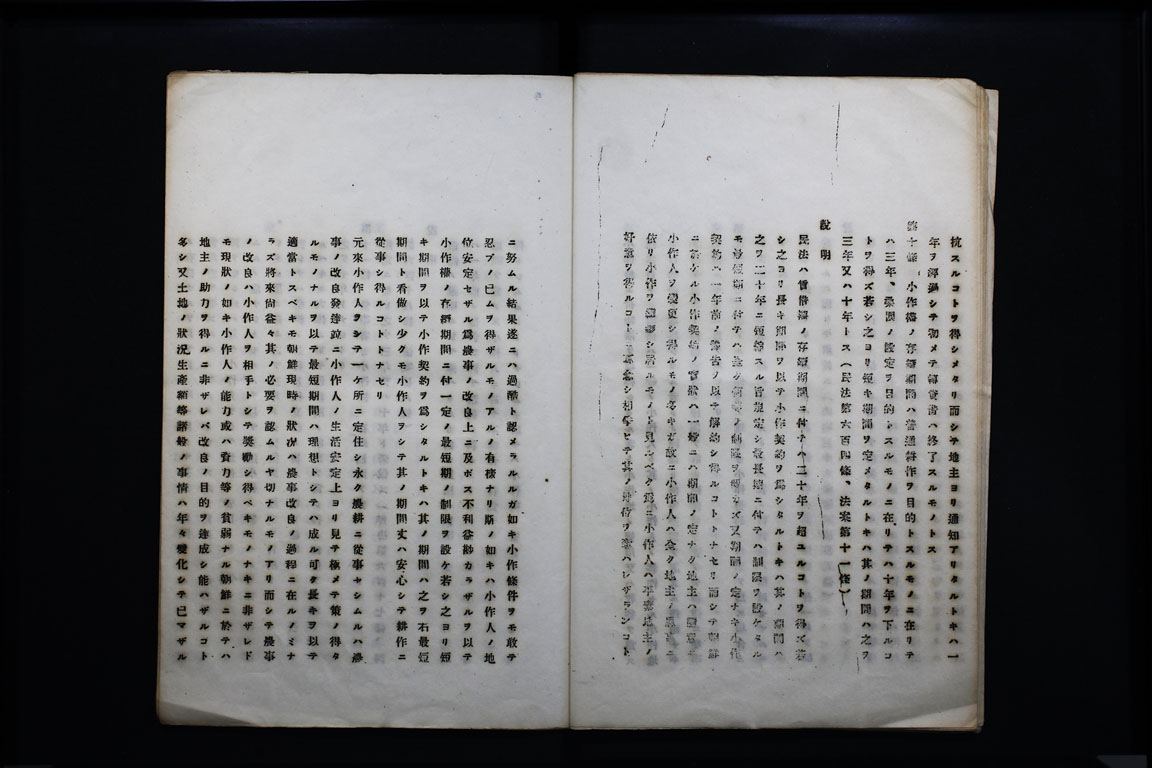 抗スルコトヲ得シメタリ而シテ地主ヨリ通知アリタルトキハ一
年ヲ經過シテ初メテ賃貸借ハ終了スルモノトス
第十條 小作權ノ存續期間ハ普通耕作ヲ目的トスルモノニ在リテ
ハ三年、桑園ノ設定ヲ目的トスルモノニ在リテハ十年ヲ下ルコ
トヲ得ズ若シ之ヨリ短キ期間ヲ定メタルトキハ其ノ期間ハ之ヲ
三年又ハ十年トス(民法第六百四條、法案第十一條)
說明
民法ハ賃借權ノ存續期間ニ付テハ二十年ヲ超ユルコトヲ得ズ若
シ之ヨリ長キ期間ヲ以テ小作契約ヲ爲シタルトキハ其ノ期間ハ
之ヲ二十年ニ短縮スル旨規定シ最長期ニ付テハ制限ヲ設ケタル
モ最短期ニ付テハ何等ノ制限ヲ設ケズ又期間ノ定ナキ小作
契約ハ一年前ノ豫告ヲ以テ解約シ得ルコトトナセリ而シテ朝鮮
ニ於ケル小作契約ノ實狀ハ一般ニハ期間ノ定ナク地主ハ隨意ニ
小作人ヲ變更シ得ルモノ多キガ故ニ小作人ハ全ク地主ノ
依リ小作ヲ繼續シ居ルモノト見ルベク爲ニ小作人ハ平素地主ノ
好意ヲ得ルコト
ニ努ムル結果遂ニハ過酷ト認メラルルガ如キ小作條件ヲモ敢テ
忍ブノ已ムヲ得ザルモノアルノ有樣ナリ斯ノ如キハ小作人ノ地
位安定セザル爲農事ノ改良上ニ及ボス不利益尠カラザルヲ以テ
小作權ノ存續期間ニ付一定ノ最短期ノ制限ヲ設ケ若シ之ヨリ短
キ期間ヲ以テ小作契約ヲ爲シタルトキハ其ノ期間ハ之ヲ右最短
期間ト看做シ少クモ小作人ヲシテ其ノ期間丈ハ安心シテ耕作ニ
從事シ得ルコトトナセリ
元來小作人ヲシテ一ケ所ニ定住シ永ク農耕ニ從事セシムルハ農
事ノ改良發達竝ニ小作人ノ生活安定上ヨリ見テ極メテ策ノ得タ
ルモノナルヲ以テ最短期間ハ理想トシテハ成ル可ク長キヲ以テ
適當トスベキモ朝鮮現時ノ狀況ハ農事改良ノ過程ニ在ルノミナ
ラズ將來尙益々其ノ必要ヲ認ムルヤ切ナルモノアリ而シテ農事
ノ改良ハ小作人ヲ相手トシテ奬勵シ得ベキモノナキニ非ザレド
モ現狀ノ如キ小作人ノ能力或ハ資力等ノ貧弱ナル朝鮮ニ於テハ
地主ノ助力ヲ得ルニ非ザレバ改良ノ目的ヲ達成シ能ハザルコト
多シ又土地ノ狀況生產額等諸般ノ事情ハ年々變化シテ已マザル